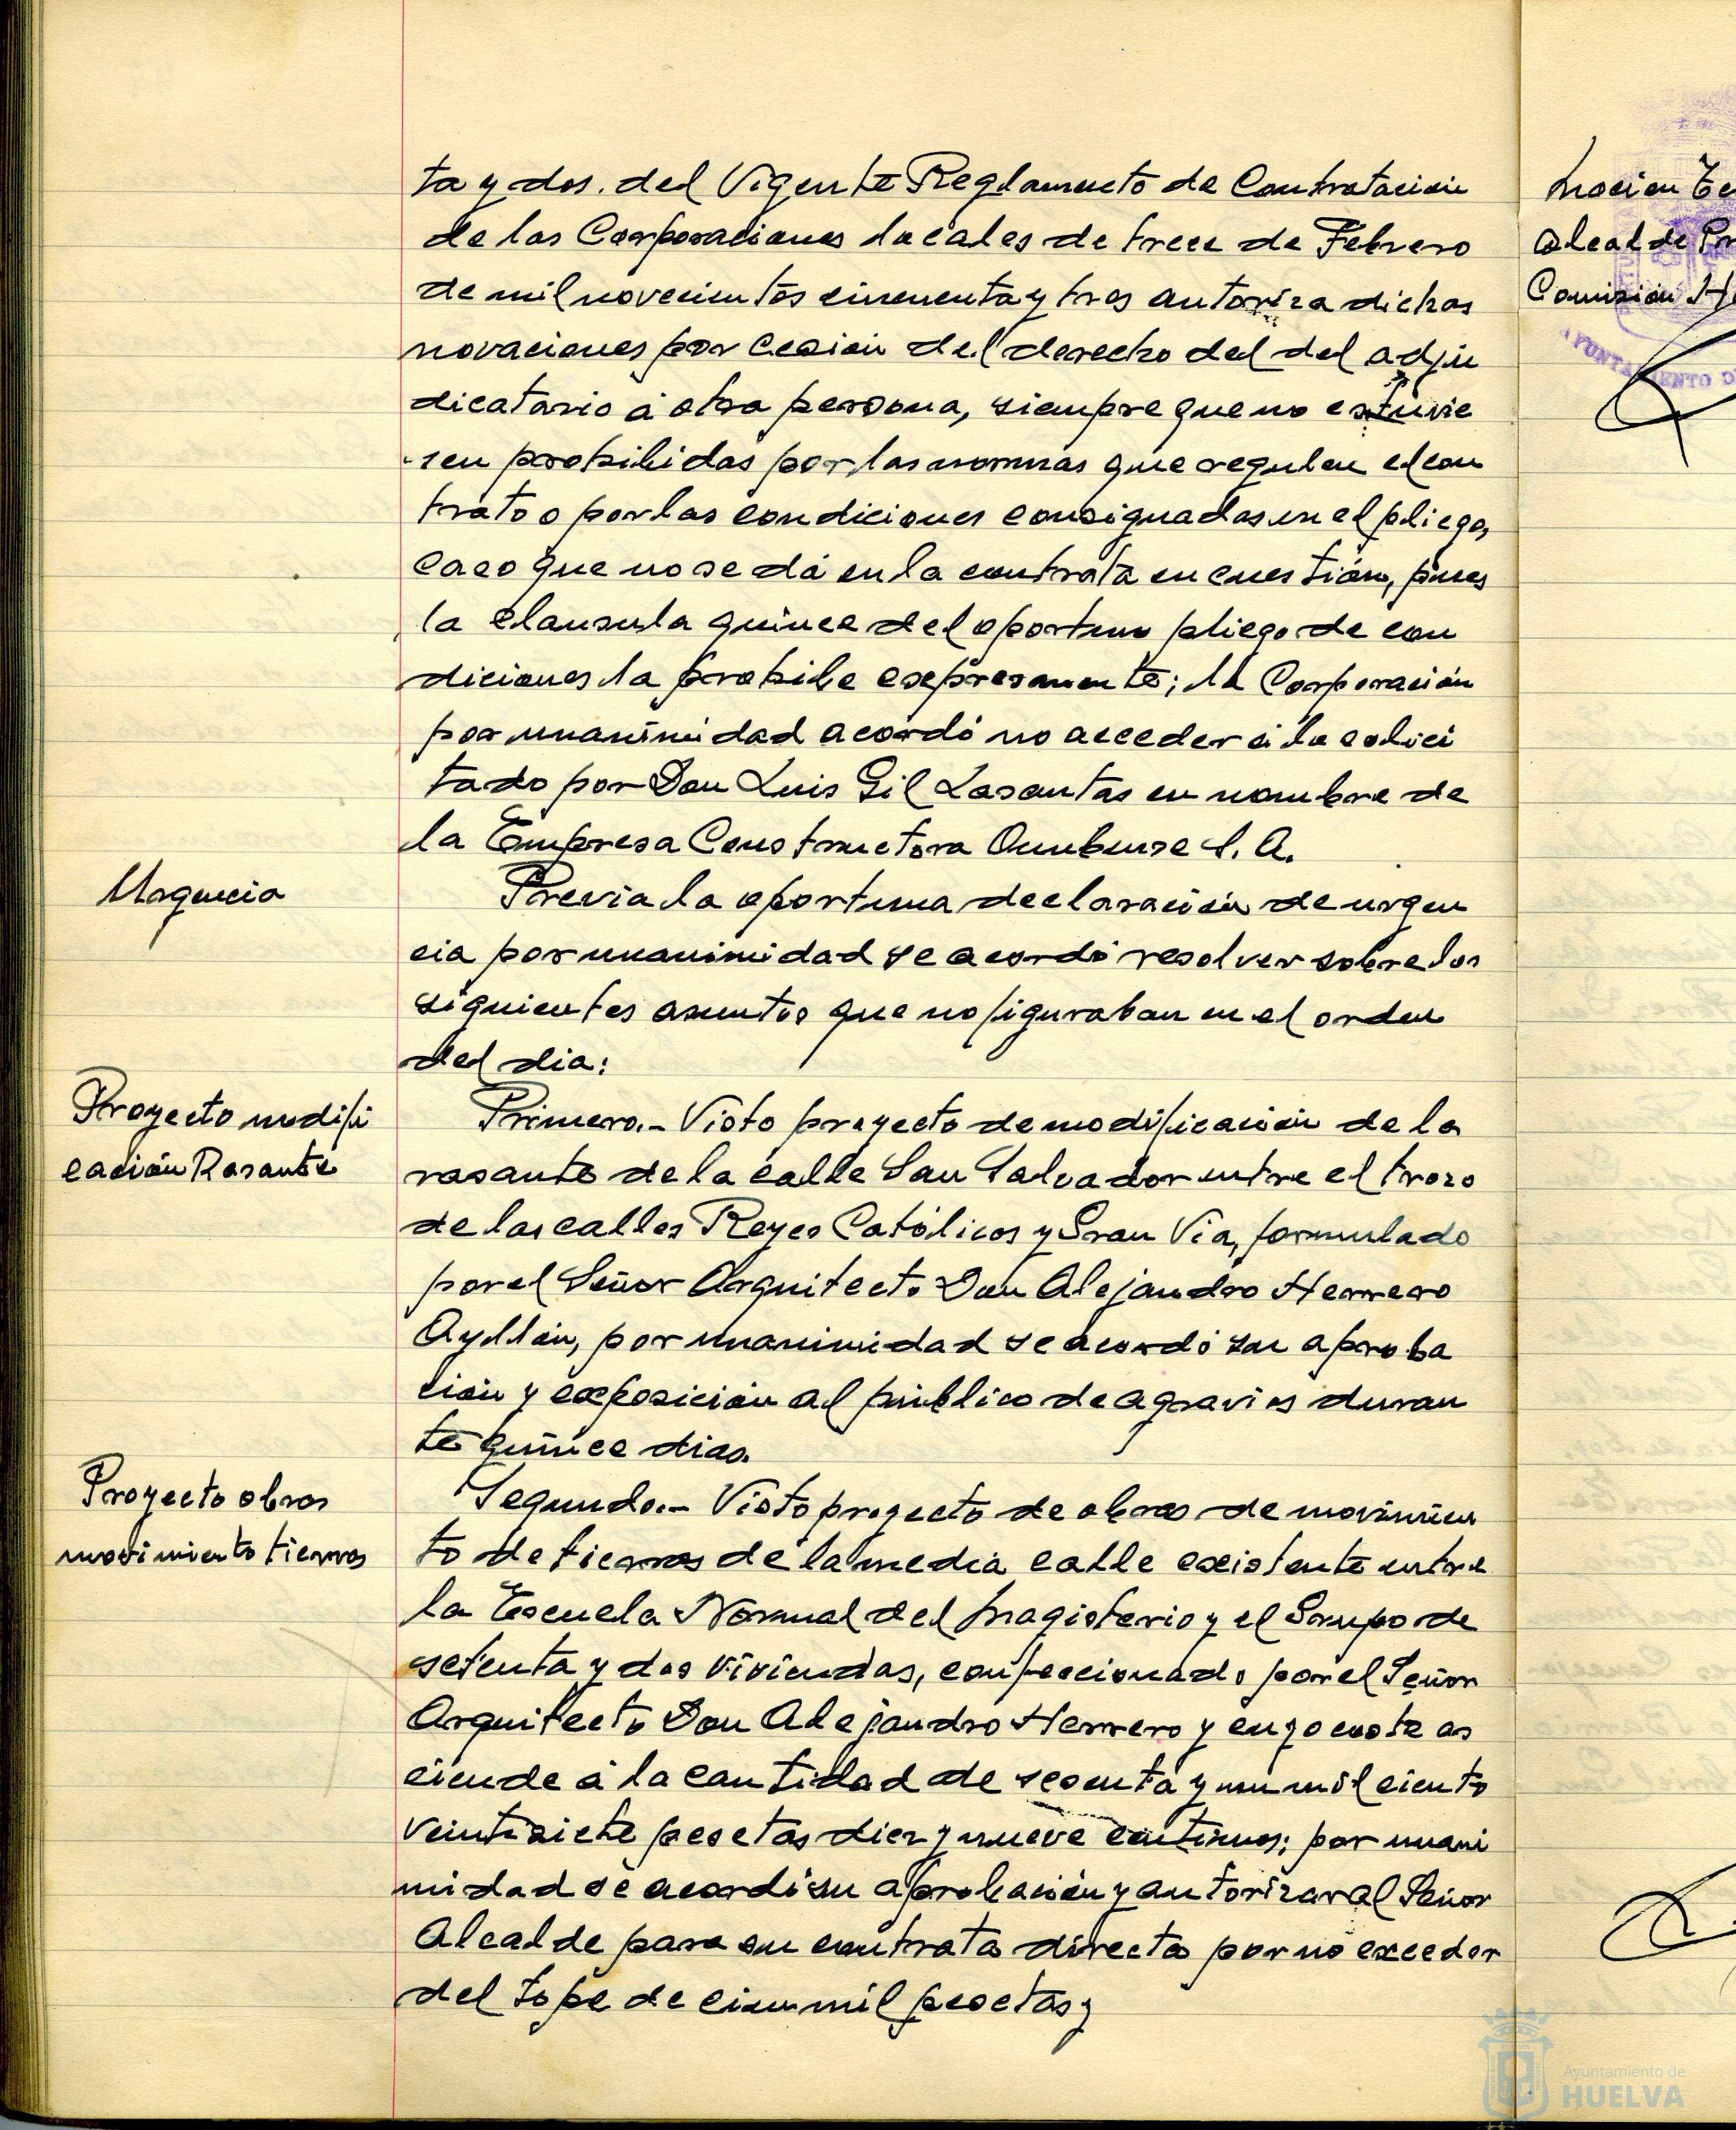 ta y dos. del Vigente Reglamento de Contratación
de las Corporaciones locales de trece de Febrero
de mil novecientos cincuenta y tres autoriza dichas
novaciones por cesión del derecho del del adju
dicatario á otra persona, siempre que no estuvie
sen prohibidas por las normas que regulen el con
trato o por las condiciones consignadas en el pliego,
caso que no se dá en la contrata en cuestión, pues
la clausula quince del oportuno pliego de con
diciones la prohibe expresamente; la Corporación
por unanimidad acordó no acceder á lo solici
tado por Don Luis Gil Lasantas en nombre de
la Empresa Constructora Onubense S. A.
Urgencia
Previa la oportuna declaración de urgen
cia por unanimidad se acordó resolver sobre los
siguientes asuntos que no figuraban en el orden
del dia:
Proyecto modifi
cación Rasante
Primero.- Visto proyecto de modificación de la
rasante de la calle San Salvador entre el trozo
de las calles Reyes Católicos y Gran Via, formulado
por el Señor Arquitecto Don Alejandro Herrero
Ayllón, por unanimidad se acordó su aproba
ción y exposición al público de agravios duran
te quince dias.
Proyecto obras
movimiento tierras
Segundo.- Visto proyecto de obras de movimien
to de tierras de la media calle existente entre
la Escuela Normal del Magisterio y el Grupo de
setenta y dos viviendas, confeccionado por el Señor
Arquitecto Don Alejandro Herrero y cuyo coste as
ciende á la cantidad de sesenta y un mil ciento
veintisiete pesetas diez y nueve centimos; por unani
midad se acordó su aprobación y autorizar al Señor
Alcalde para su contrata directa por no exceder
del tope de cien mil pesetas y
Moción
Alcalde
Comisión
AYUNTAMIENTO
Ayuntamiento de
HUELVA